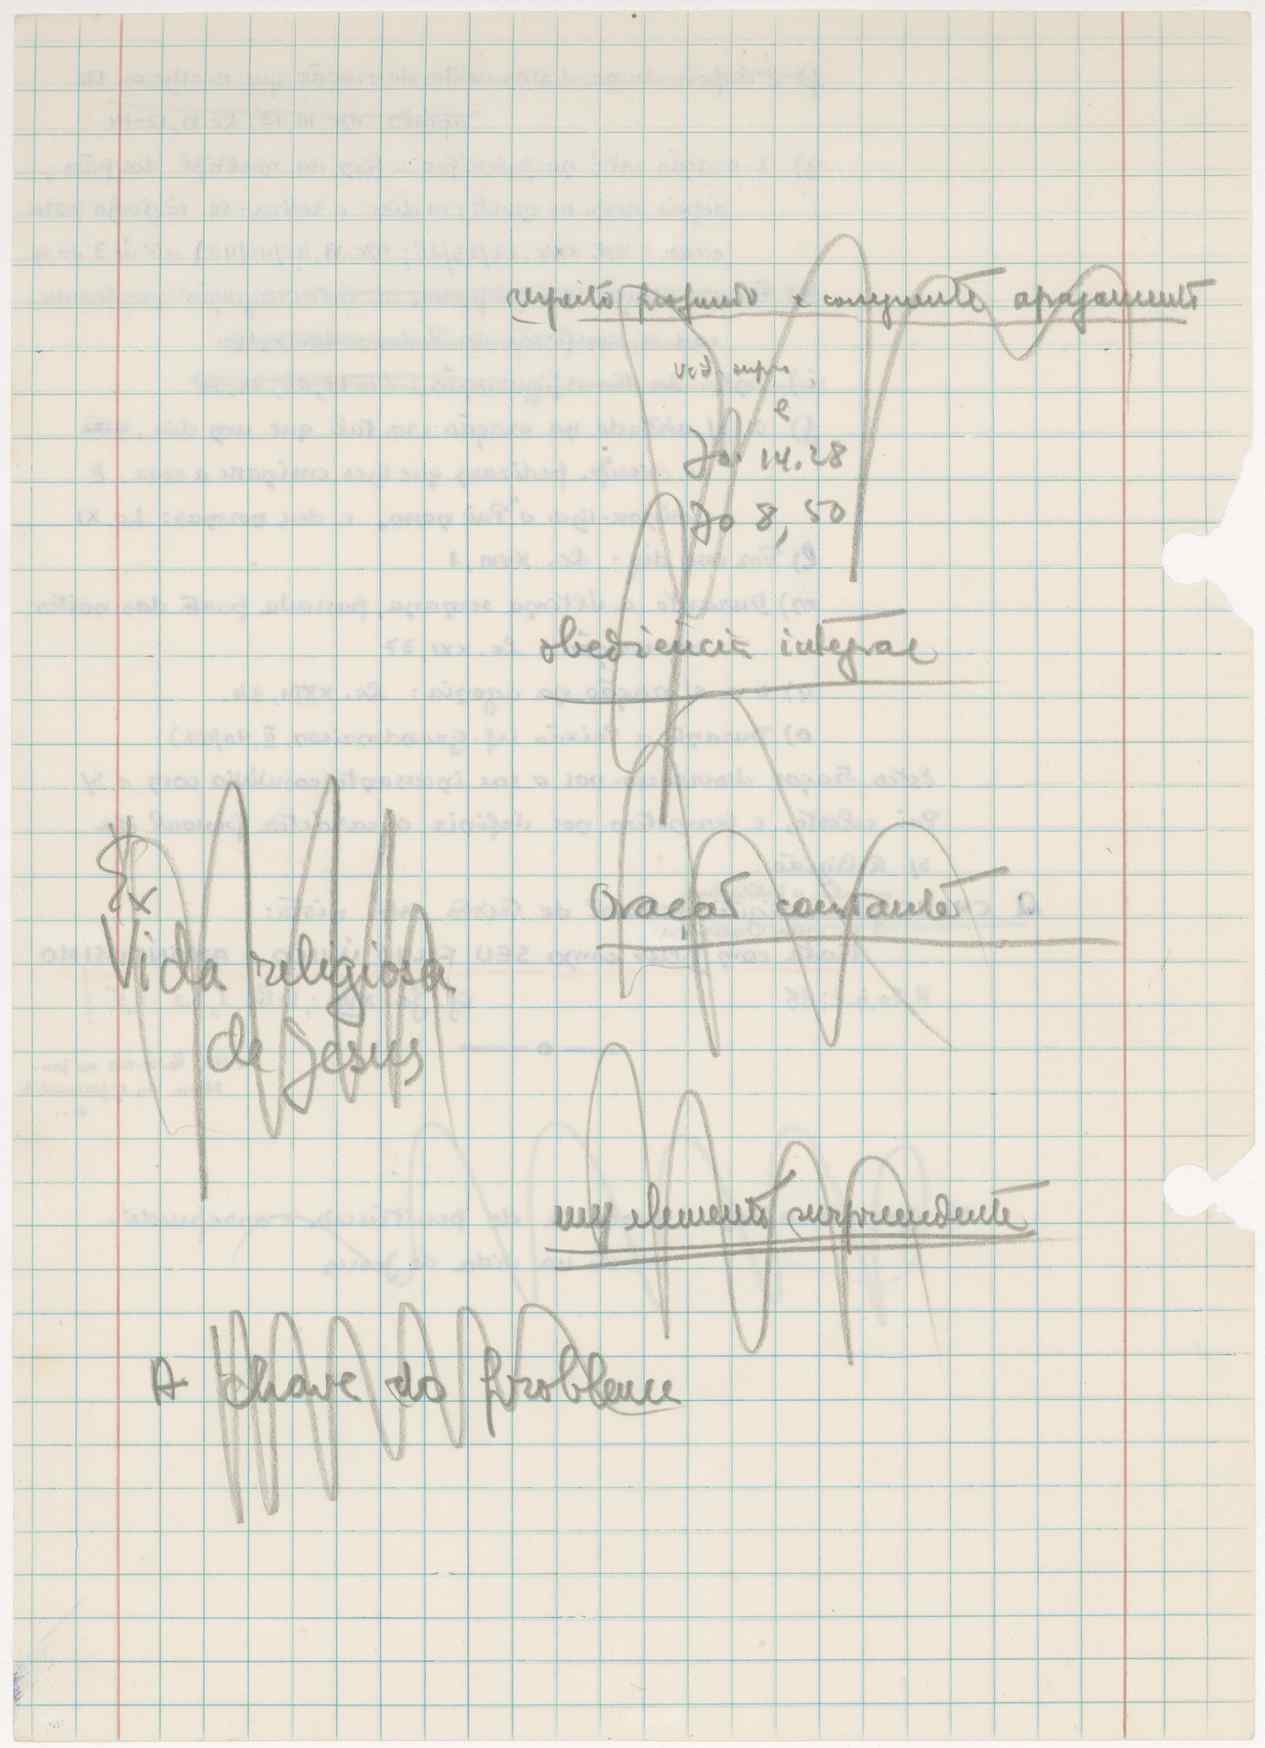 respeito profundo e consequente apagamento
vid. supra
e
Jo. 14.28
Jo 8, 50
obediência integral
Oração constante
Vida religiosa
de Jesus
um elemento surpreendente
A chave do problema